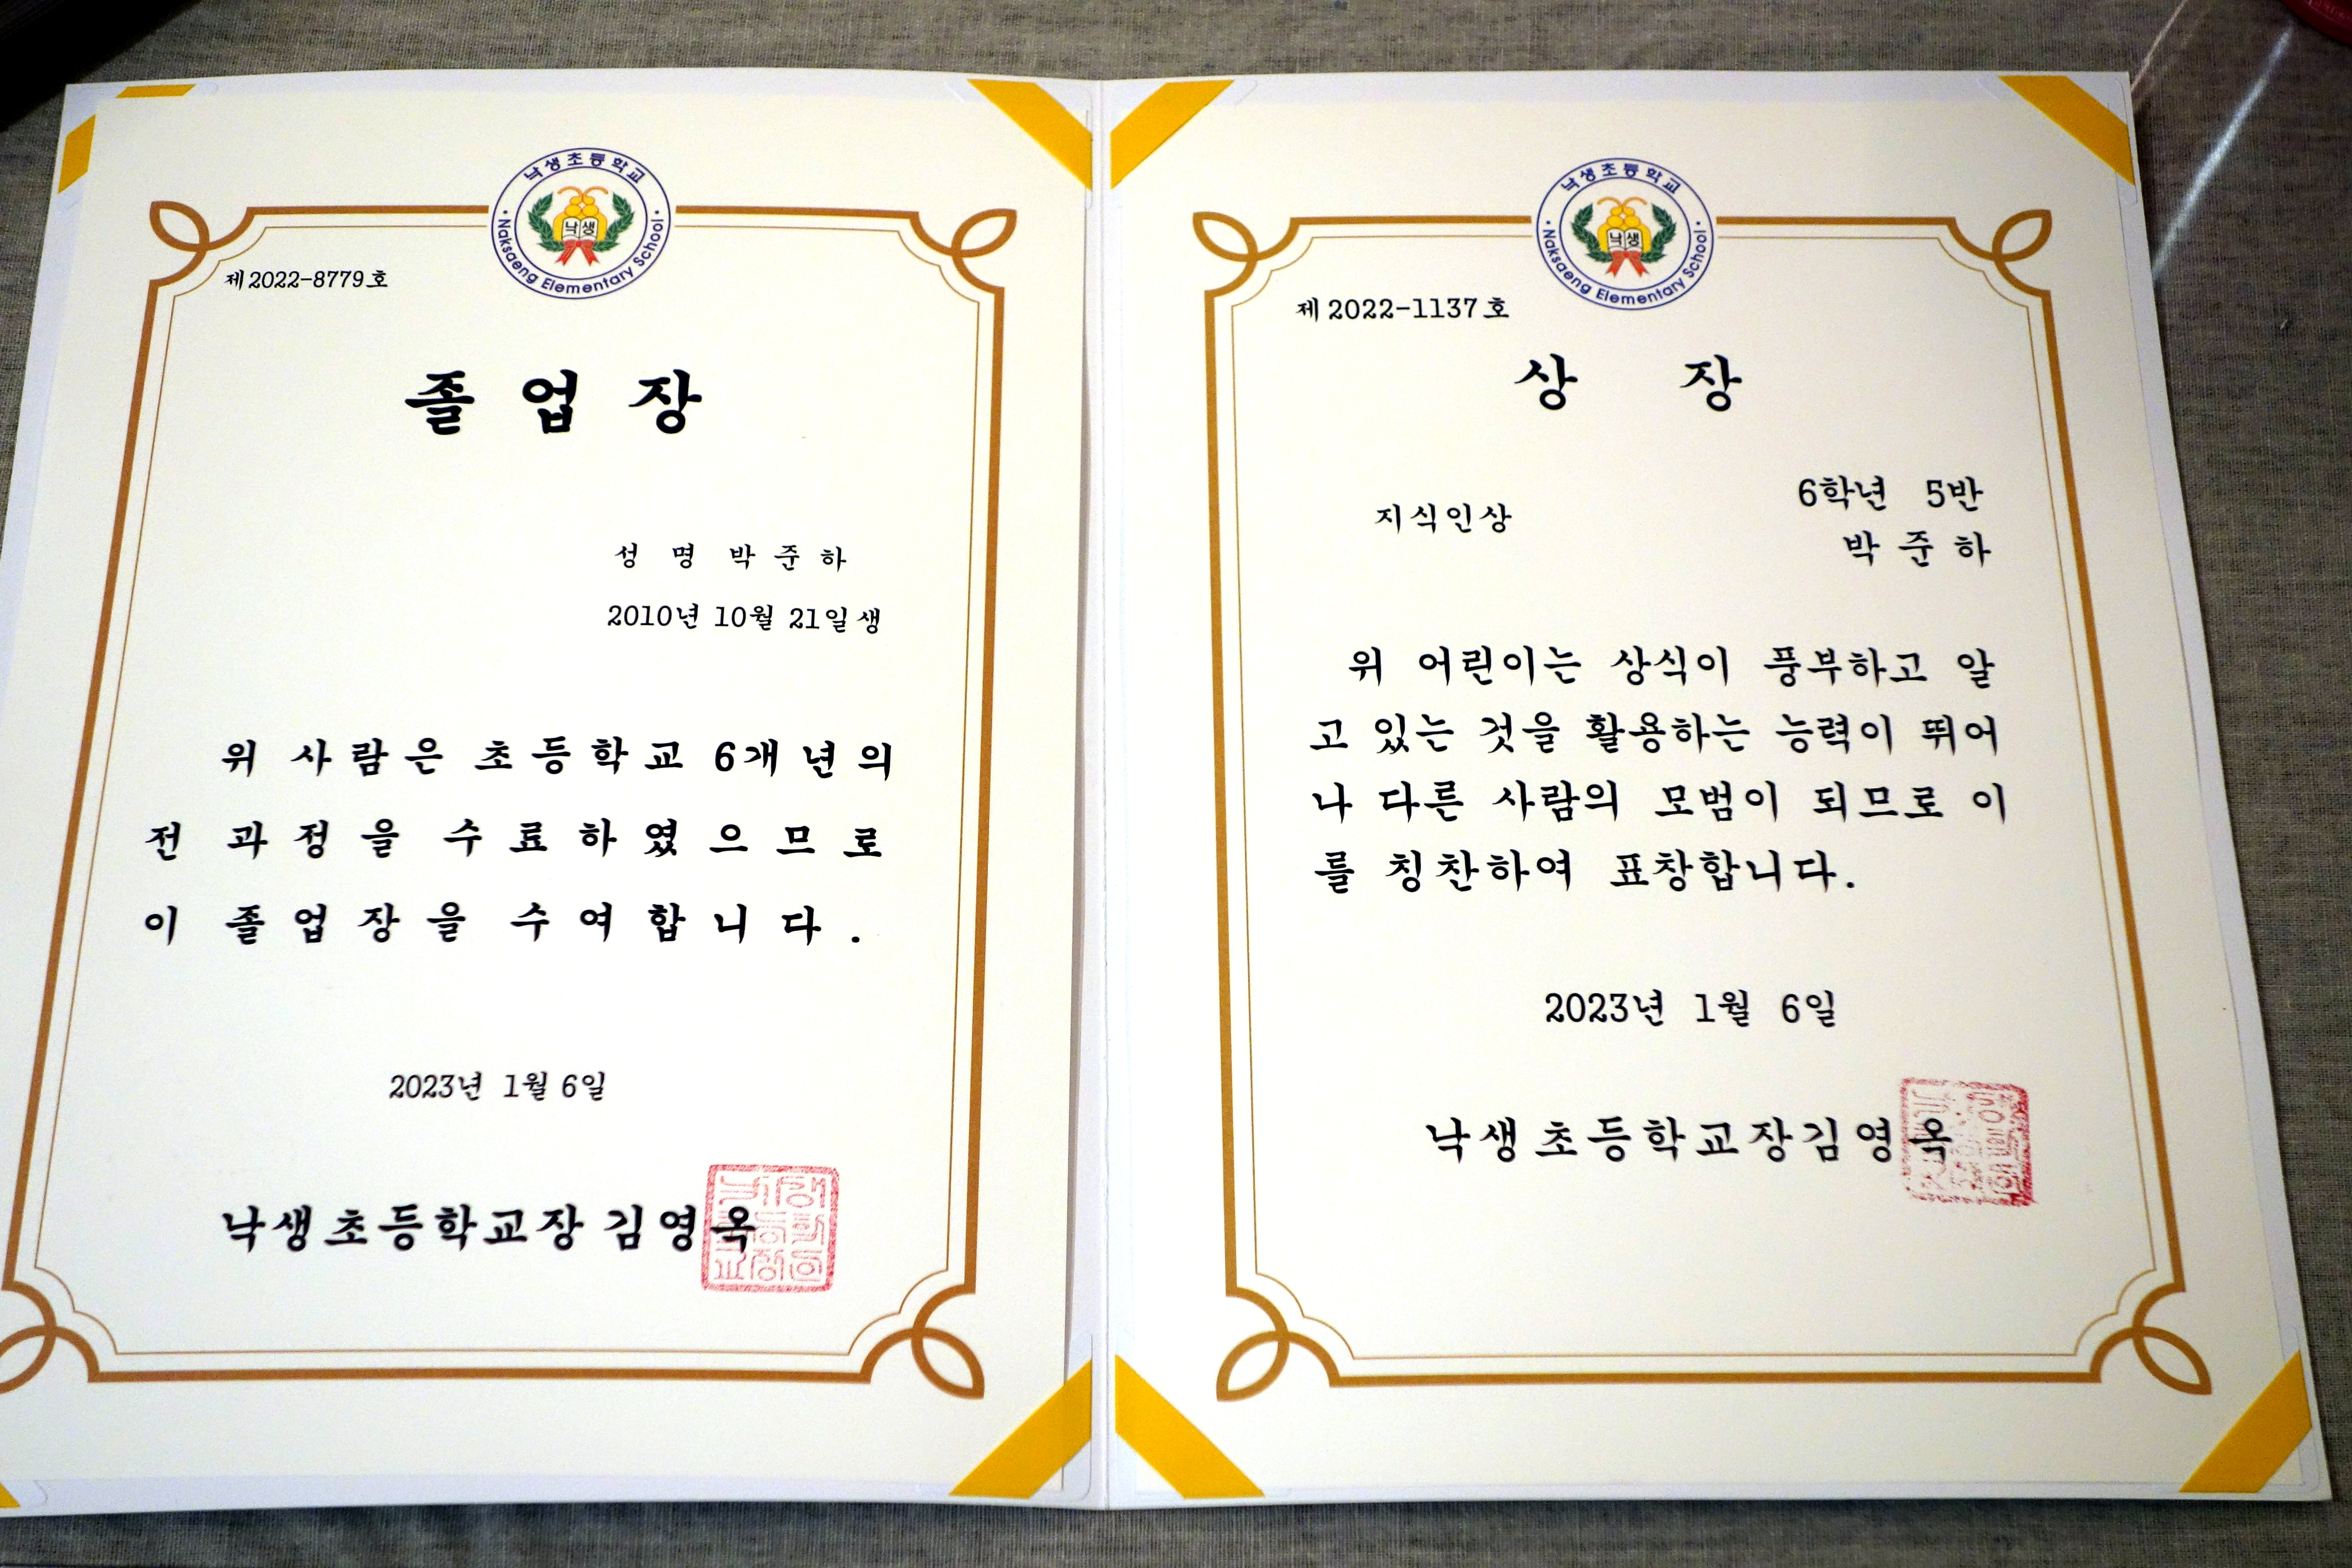 낙생초등학교
낙생
Naksaeng Elementary School
제 2022-8779 호
졸 업 장
성 명 박 준 하
2010년 10월 21일생
위 사람은 초등학교 6개년의
전 과정을 수료하였으므로
이 졸업장을 수여합니다.
2023년 1월 6일
낙생초등학교장 김영옥
낙생초등학교
낙생
Naksaeng Elementary School
제 2022-1137 호
상 장
지식인상
6학년 5반
박 준 하
위 어린이는 상식이 풍부하고 알
고 있는 것을 활용하는 능력이 뛰어
나 다른 사람의 모범이 되므로 이
를 칭찬하여 표창합니다.
2023년 1월 6일
낙생초등학교장김영옥